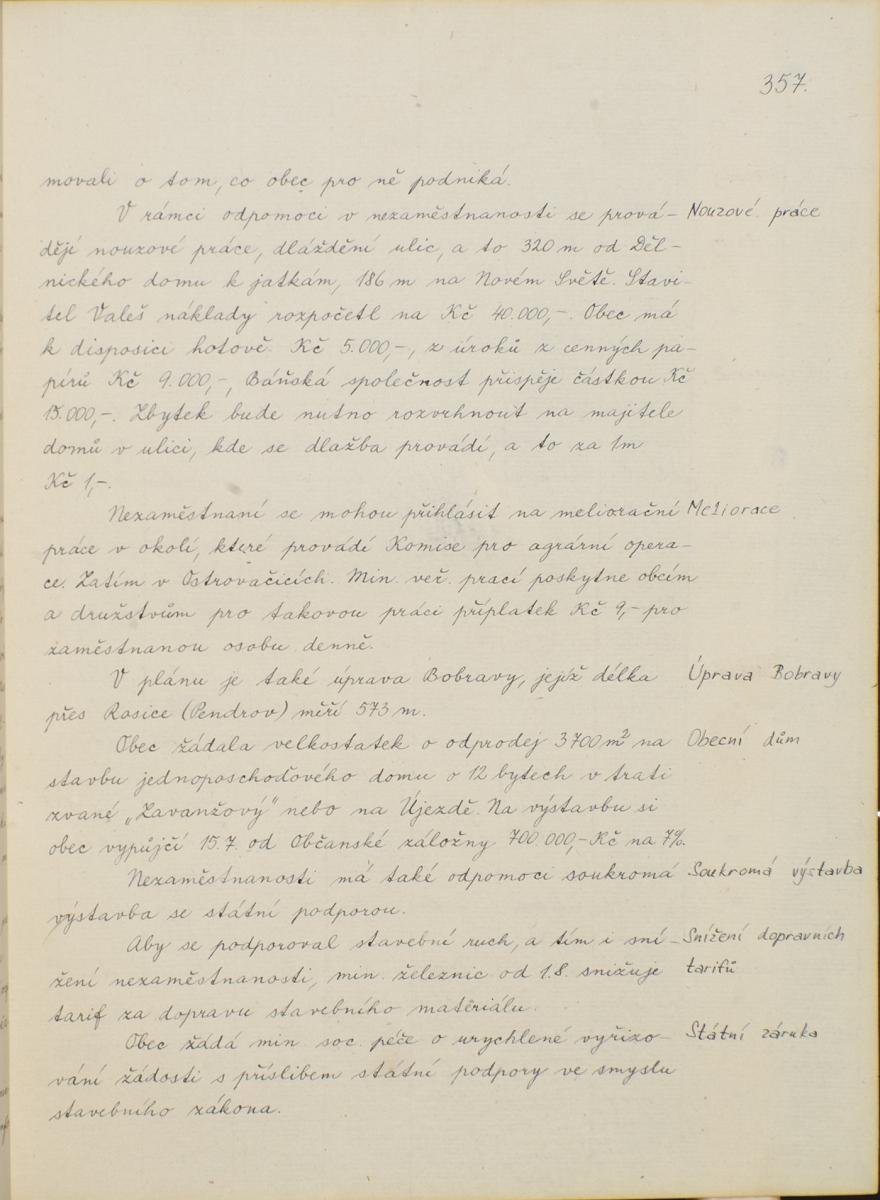 357.
movali o tom, co obec pro ně podniká.
V rámci odpomoci v nezaměstnanosti se prová- Nouzové práce
dějí nouzové práce, dláždění ulic, a to 320 m od Děl-
nického domu k jatkám, 186 m na Novém Světě. Stavi-
tel Valeš náklady rozpočetl na Kč 40.000,-. Obec má
k disposici hotově Kč 5.000,-, z úroků z cenných pa-
pírů Kč 9.000,-, Báňská společnost přispěje částkou Kč
15.000,-. Zbytek bude nutno rozvrhnout na majitele
domů v ulici, kde se dlažba provádí, a to za 1m
Kč 1,-.
Nezaměstnaní se mohou přihlásit na meliorační Meliorace
práce v okolí, které provádí Komise pro agrární opera-
ce. Zatím v Ostrovačicích. Min. veř. prací poskytne obcím
a družstvům pro takovou práci příplatek Kč 9,- pro
zaměstnanou osobu denně.
V plánu je také úprava Bobravy, jejíž délka Úprava Bobravy
přes Rosice (Pendrov) měří 573 m.
Obec žádala velkostatek o odprodej 3700 m² na Obecní dům
stavbu jednoposchoďového domu o 12 bytech v trati
zvané „Zavanžový" nebo na Újezdě. Na výstavbu si
obec vypůjčí 15.7. od Občanské záložny 700.000,- Kč na 7%.
Nezaměstnanosti má také odpomoci soukromá Soukromá výstavba
výstavba se státní podporou.
Aby se podporoval stavební ruch, a tím i sní- Snížení dopravních
žení nezaměstnanosti, min. železnic od 1.8. snižuje tarifů
tarif za dopravu stavebního materiálu.
Obec žádá min. soc. péče o urychlené vyřizo- Státní záruka
vání žádosti s příslibem státní podpory ve smyslu
stavebního zákona.